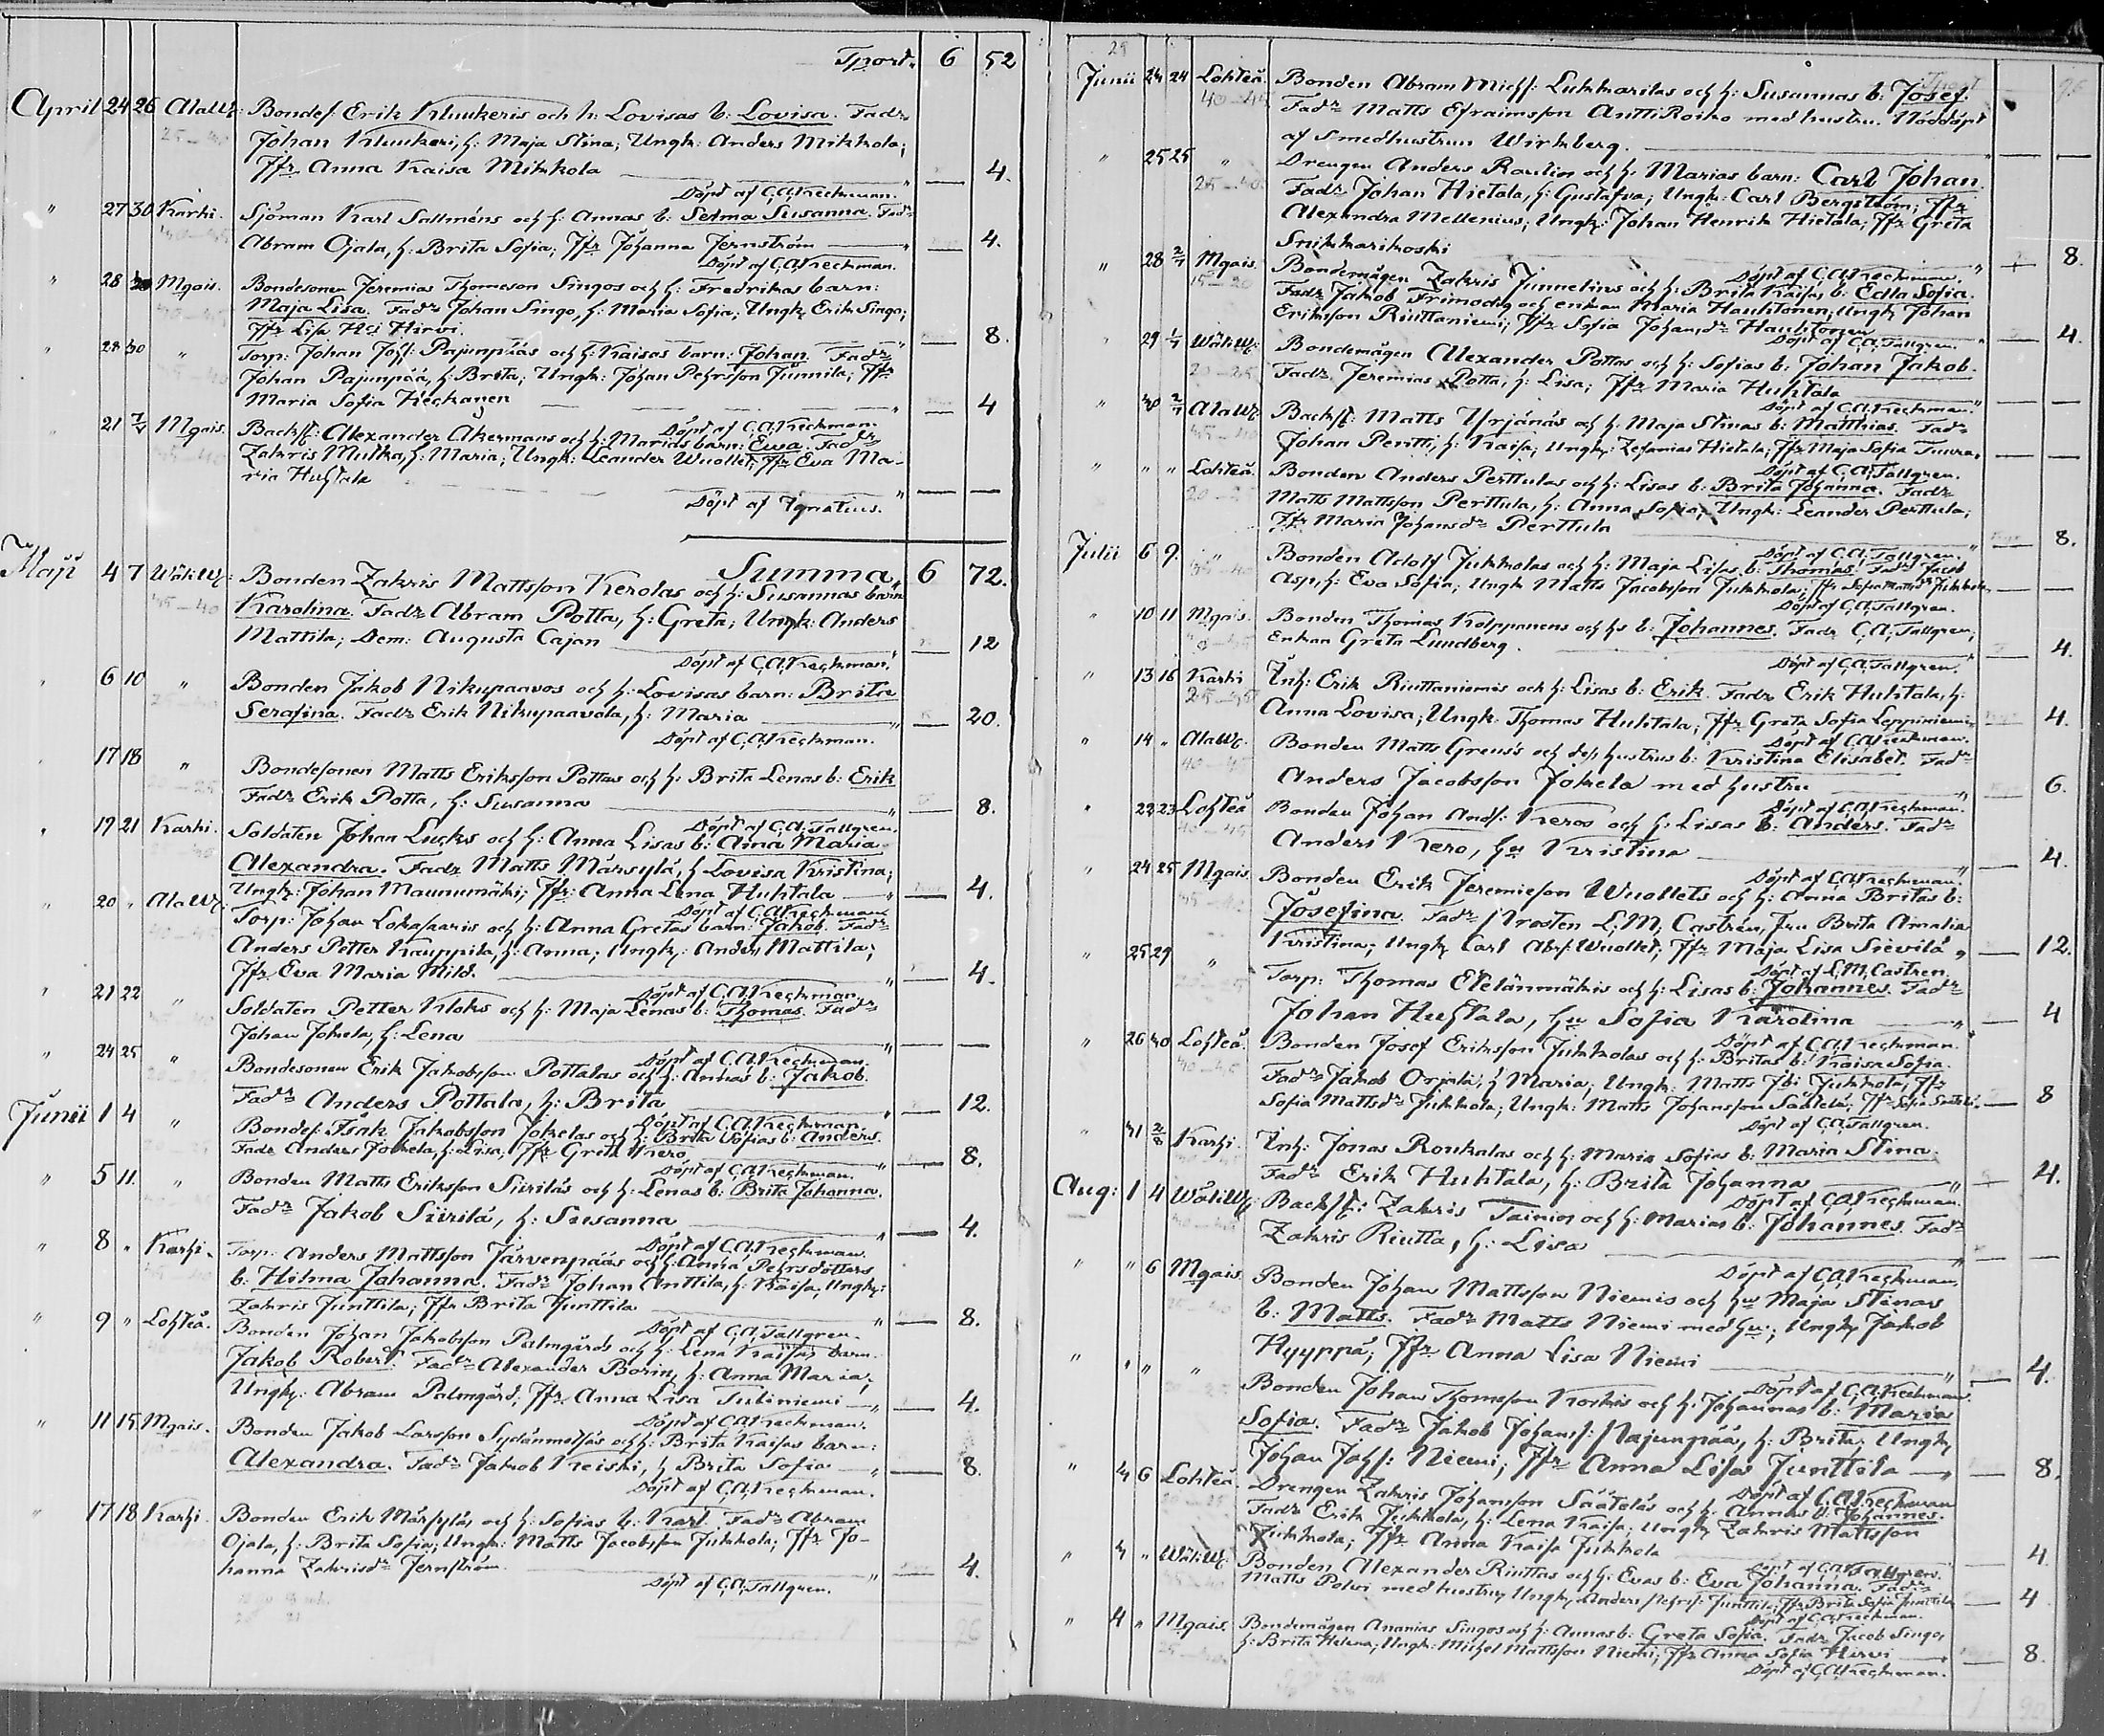 Tport. 6 52
April 24 26 AlaW: Bondes: Erik Klunkeris och h: Lovisas b: Lovisa. Fadr
Johan Klunkeri, h: Maja Stina; Ungk: Anders Mikkola;
Jfr Anna Kaisa Mikkola — 4.
Döpt af C.A. Keckman.
" 27 30 Karhi. Sjöman Karl Sallméns och h: Annas b: Selma Susanna. Fadr
Abram Ojala, h: Brita Sofia; Jfr Johanna Jernström — 4.
Döpt af C.A. Keckman.
" 28 30 Mgais. Bondesonen Jeremias Thomeson Singos och h: Fredrikas barn:
Maja Lisa. Fadr Johan Singo, h: Maria Sofia; Ungk Erik Singo;
Jfr Lisa Hirvi. — 8.
" 28 30 " Torp: Johan Johs: Pajunpääs och h: Kaisas barn: Johan. Fadr
Johan Pajunpää, h: Brita; Ungk: Johan Pehrsson Junnila; Jfr
Maria Sofia Keckanen — 4
Döpt af C.A. Keckman.
" 21 7/5 Mgais. Backst: Alexander Åkermans och h: Marias barn: Ewa. Fadr
Zakris Mutka, h: Maria; Ungk: Leander Wuollet; Jfr Eva Ma-
ria Huhtala — —
Döpt af Ignatius.
Summa, 6 72.
Maji 4 7 WäliW: Bonden Zakris Mattsson Kerolas och h: Susannas barn
Karolina. Fadr Abram Potta, h: Greta; Ungk: Anders
Mattila; Dem: Augusta Cajan — 12
Döpt af C.A. Keckman.
" 6 10 " Bonden Jakob Nikupaavos och h: Lovisas barn: Brita
Serafina. Fadr Erik Nikupaavola, h: Maria — 20.
Döpt af C.A. Keckman.
" 17 18 " Bondesonen Matts Eriksson Pottas och h: Brita Lenas b: Erik
Fadr Erik Potta, h: Susanna — 8.
Döpt af C.A. Tallgren.
" 19 21 Karhi. Soldaten Johan Lucks och h: Anna Lisas b: Aina Maria
Alexandra. Fadr Matts Märsylä, h: Lovisa Kristina;
Ungk: Johan Maunumäki; Jfr: Anna Lena Huhtala — 4.
Döpt af C.A. Keckman.
" 20 " AlaW: Torp: Johan Lokasaaris och h: Anna Gretas barn: Jakob. Fadr
Anders Petter Kauppila, h: Anna; Ungk: Anders Mattila;
Jfr Eva Maria Mild. — 4.
Döpt af C.A. Keckman.
" 21 22 " Soldaten Petter Kloks och h: Maja Lenas b: Thomas. Fadr
Johan Jokela, h: Lena — —
Döpt af C.A. Keckman.
" 24 25 " Bondesonen Erik Jakobsson Pottalas och h: Annas b: Jakob.
Fadr Anders Pottala, h: Brita — 12.
Döpt af C.A. Keckman.
Junii 1 4 " Bondes: Isak Jakobsson Jokelas och h: Brita Sofias b: Anders.
Fadr Anders Jokela, h: Lisa, Jfr Greta Kero — 8.
Döpt af C.A. Keckman.
" 5 11. " Bonden Matts Eriksson Siiriläs och h: Lenas b: Brita Johanna.
Fadr Jakob Siirilä, h: Susanna — 4.
Döpt af C.A. Keckman.
" 8 " Karhi. Torp: Anders Mattsson Järvenpääs och h: Anna Pehrsdotters
b: Hilma Johanna. Fadr Johan Anttila, h: Kaisa; Ungk:
Zakris Junttila; Jfr Brita Junttila — 8.
Döpt af C.A. Tallgren.
" 9 " Lohteå. Bonden Johan Jakobsson Palmgårds och h: Lena Kaisas barn.
Jakob Robert. Fadr Alexander Borin, h: Anna Maria;
Ungk: Abram Palmgård; Jfr Anna Lisa Tuliniemi — 4.
Döpt af C.A. Keckman.
" 11 15 Mgais. Bonden Jakob Larsson Sydänmetsäs och h: Brita Kaisas barn:
Alexandra. Fadr Jakob Keiski, h Brita Sofia — 8.
Döpt af C.A. Keckman.
" 17 18 Karhi. Bonden Erik Märsyläs och h: Sofias b: Karl. Fadr Abram
Ojala, h: Brita Sofia; Ungk: Matts Jacobsson Jukkola; Jfr Jo-
hanna Zakrisdr Jernström. — 4.
Döpt af C.A. Tallgren.
26
29
Junii 24 24 Lohteå. Bonden Abram Michs: Lukkarilas och h: Susannas b: Josef.
Fadr Matts Efraimsson AnttiRoiko med hustru. Nöddöpt
af Smedhustrun Wirkberg. — —
" 25 25 " Drengen Anders Rautios och h: Marias barn: Carl Johan.
Fadr Johan Hietala, h: Gustafva; Ungk: Carl Bergström; Jfr
Alexandra Mellenius; Ungk: Johan Henrik Hietala; Jfr Greta
Snikkarikoski — 8.
Döpt af C.A. Keckman.
" 28 2/7 Mgais. Bondemågen Zakris Junnelius och h: Brita Kaisas b: Edla Sofia.
Fadr Jakob Frimodig och enkan Maria Hauhtonen; Ungk Johan
Eriksson Riuttaniemi; Jfr Sofia Johansdr Hauhtonen — 4.
Döpt af C.A. Tallgren.
" 29 1/7 WäliW: Bondemågen Alexander Pottas och h: Sofias b: Johan Jakob.
Fadr Jeremias Potta, h: Lisa; Jfr Maria Huhtala — —
Döpt af C.A. Keckman.
" 30 2/7 AlaW: Backst: Matts Yrjänäs och h: Maja Stinas b: Matthias. Fadr
Johan Pentti, h: Kaisa; Ungk: Zefanias Hietala; Jfr Maja Sofia Tuura. — —
Döpt af C.A. Tallgren.
" " " Lohteå. Bonden Anders Perttulas och h: Lisas b: Brita Johanna. Fadr
Matts Mattsson Perttula, h: Anna Sofia; Ungk: Leander Perttula;
Jfr Maria Johansdr Perttula — 8.
Döpt af C.A. Tallgren.
Julii 6 9. " Bonden Adolf Jukkolas och h: Maja Lisas b: Thomas. Fadr Jacob
Asp, h: Eva Sofia; Ungk Matts Jacobsson Jukkola; Jfr Sofia Mattsdr Jukkola — —
Döpt af C.A. Tallgren.
" 10 11 Mgais. Bonden Thomas Kolppanens och hs b: Johannes. Fadr C.A. Tallgren;
Enkan Greta Lundberg. — 4.
Döpt af C.A. Tallgren.
" 13 16 Karhi Inh: Erik Riuttaniemis och h: Lisas b: Erik. Fadr Erik Huhtala, h:
Anna Lovisa; Ungk: Thomas Huhtala; Jfr Greta Sofia Leppiniemi — 4.
Döpt af C.A. Keckman.
" 14 " AlaW. Bonden Matts Greus's och dess hustrus b: Kristina Elisabet. Fadr
Anders Jacobsson Jokela med hustru — 6.
Döpt af C.A. Keckman.
" 22 23 Lohteå Bonden Johan Ands: Keros och h: Lisas b: Anders. Fadr
Anders Kero, hu Kristina — 4.
Döpt af C.A. Keckman.
" 24 25 Mgais. Bonden Erik Jeremieson Wuollets och h: Anna Britas b:
Josefina. Fadr Prosten L.M. Castrén, Fru Brita Amalia
Kristina; Ungk Carl Abrs: Wuollet; Jfr Maja Lisa Sievilä — 12.
Döpt af L.M. Castren.
" 25 29 " Torp: Thomas Etelänmäkis och h: Lisas b: Johannes. Fadr
Johan Huhtala, hu Sofia Karolina — 4
Döpt af C.A. Keckman.
" 26 30 Lohteå. Bonden Josef Eriksson Jukkolas och h: Britas b: Kaisa Sofia.
Fadr Jakob Orjala, h Maria; Ungk: Matts Jbs: Jukkola; Jfr
Sofia Mattsdr Jukkola; Ungk: Matts Johansson Säätelä; Jfr Sofia Säätelä. — 8
Döpt af C.A. Tallgren.
" 31 2/8 Karhi. Inh: Jonas Roukalas och h: Maria Sofias b: Maria Stina.
Fadr Erik Huhtala, h: Brita Johanna — 4.
Döpt af C.A. Keckman.
Aug: 1 4 WäliW: Backst: Zakris Tainios och h: Marias b: Johannes. Fadr
Zakris Riutta, h: Lisa — —
Döpt af C.A. Keckman.
" " 6 Mgais. Bonden Johan Mattsson Niemis och hu Maja Stinas
b: Matts. Fadr Matts Niemi med hu; Ungk Jakob
Hyyppä; Jfr Anna Lisa Niemi — 4.
Döpt af C.A. Keckman.
" " " " Bonden Johan Thomsson Korkis och h: Johannas b: Maria
Sofia. Fadr Jakob Johans: Pajunpää, h: Brita; Ungk
Johan Johs: Niemi; Jfr Anna Lisa Junttila — 8.
Döpt af C.A. Keckman
" 3 6 Lohteå. Drengen Zakris Johansson Sääteläs och h: Annas b: Johannes.
Fadr Erik Jukkola, h: Lena Kaisa; Ungk Zakris Mattsson
Jukkola; Jfr Anna Kaisa Jukkola — 4
Döpt af C.A. Tallgren.
" 3 " WäliW: Bonden Alexander Riuttas och h: Evas b: Eva Johanna. Fadr
Matts Polvi med hustru; Ungk Anders Pehrs: Junttila; Jfr Brita Sofia Junttila — 4
Döpt af C.A. Keckman.
" 4 " Mgais. Bondemågen Ananias Singos och h: Annas b: Greta Sofia. Fadr Jacob Singo,
h: Brita Helena; Ungk: Michel Mattsson Niemi; Jfr Anna Sofia Hirvi — 8.
Döpt af C.A. Keckman.